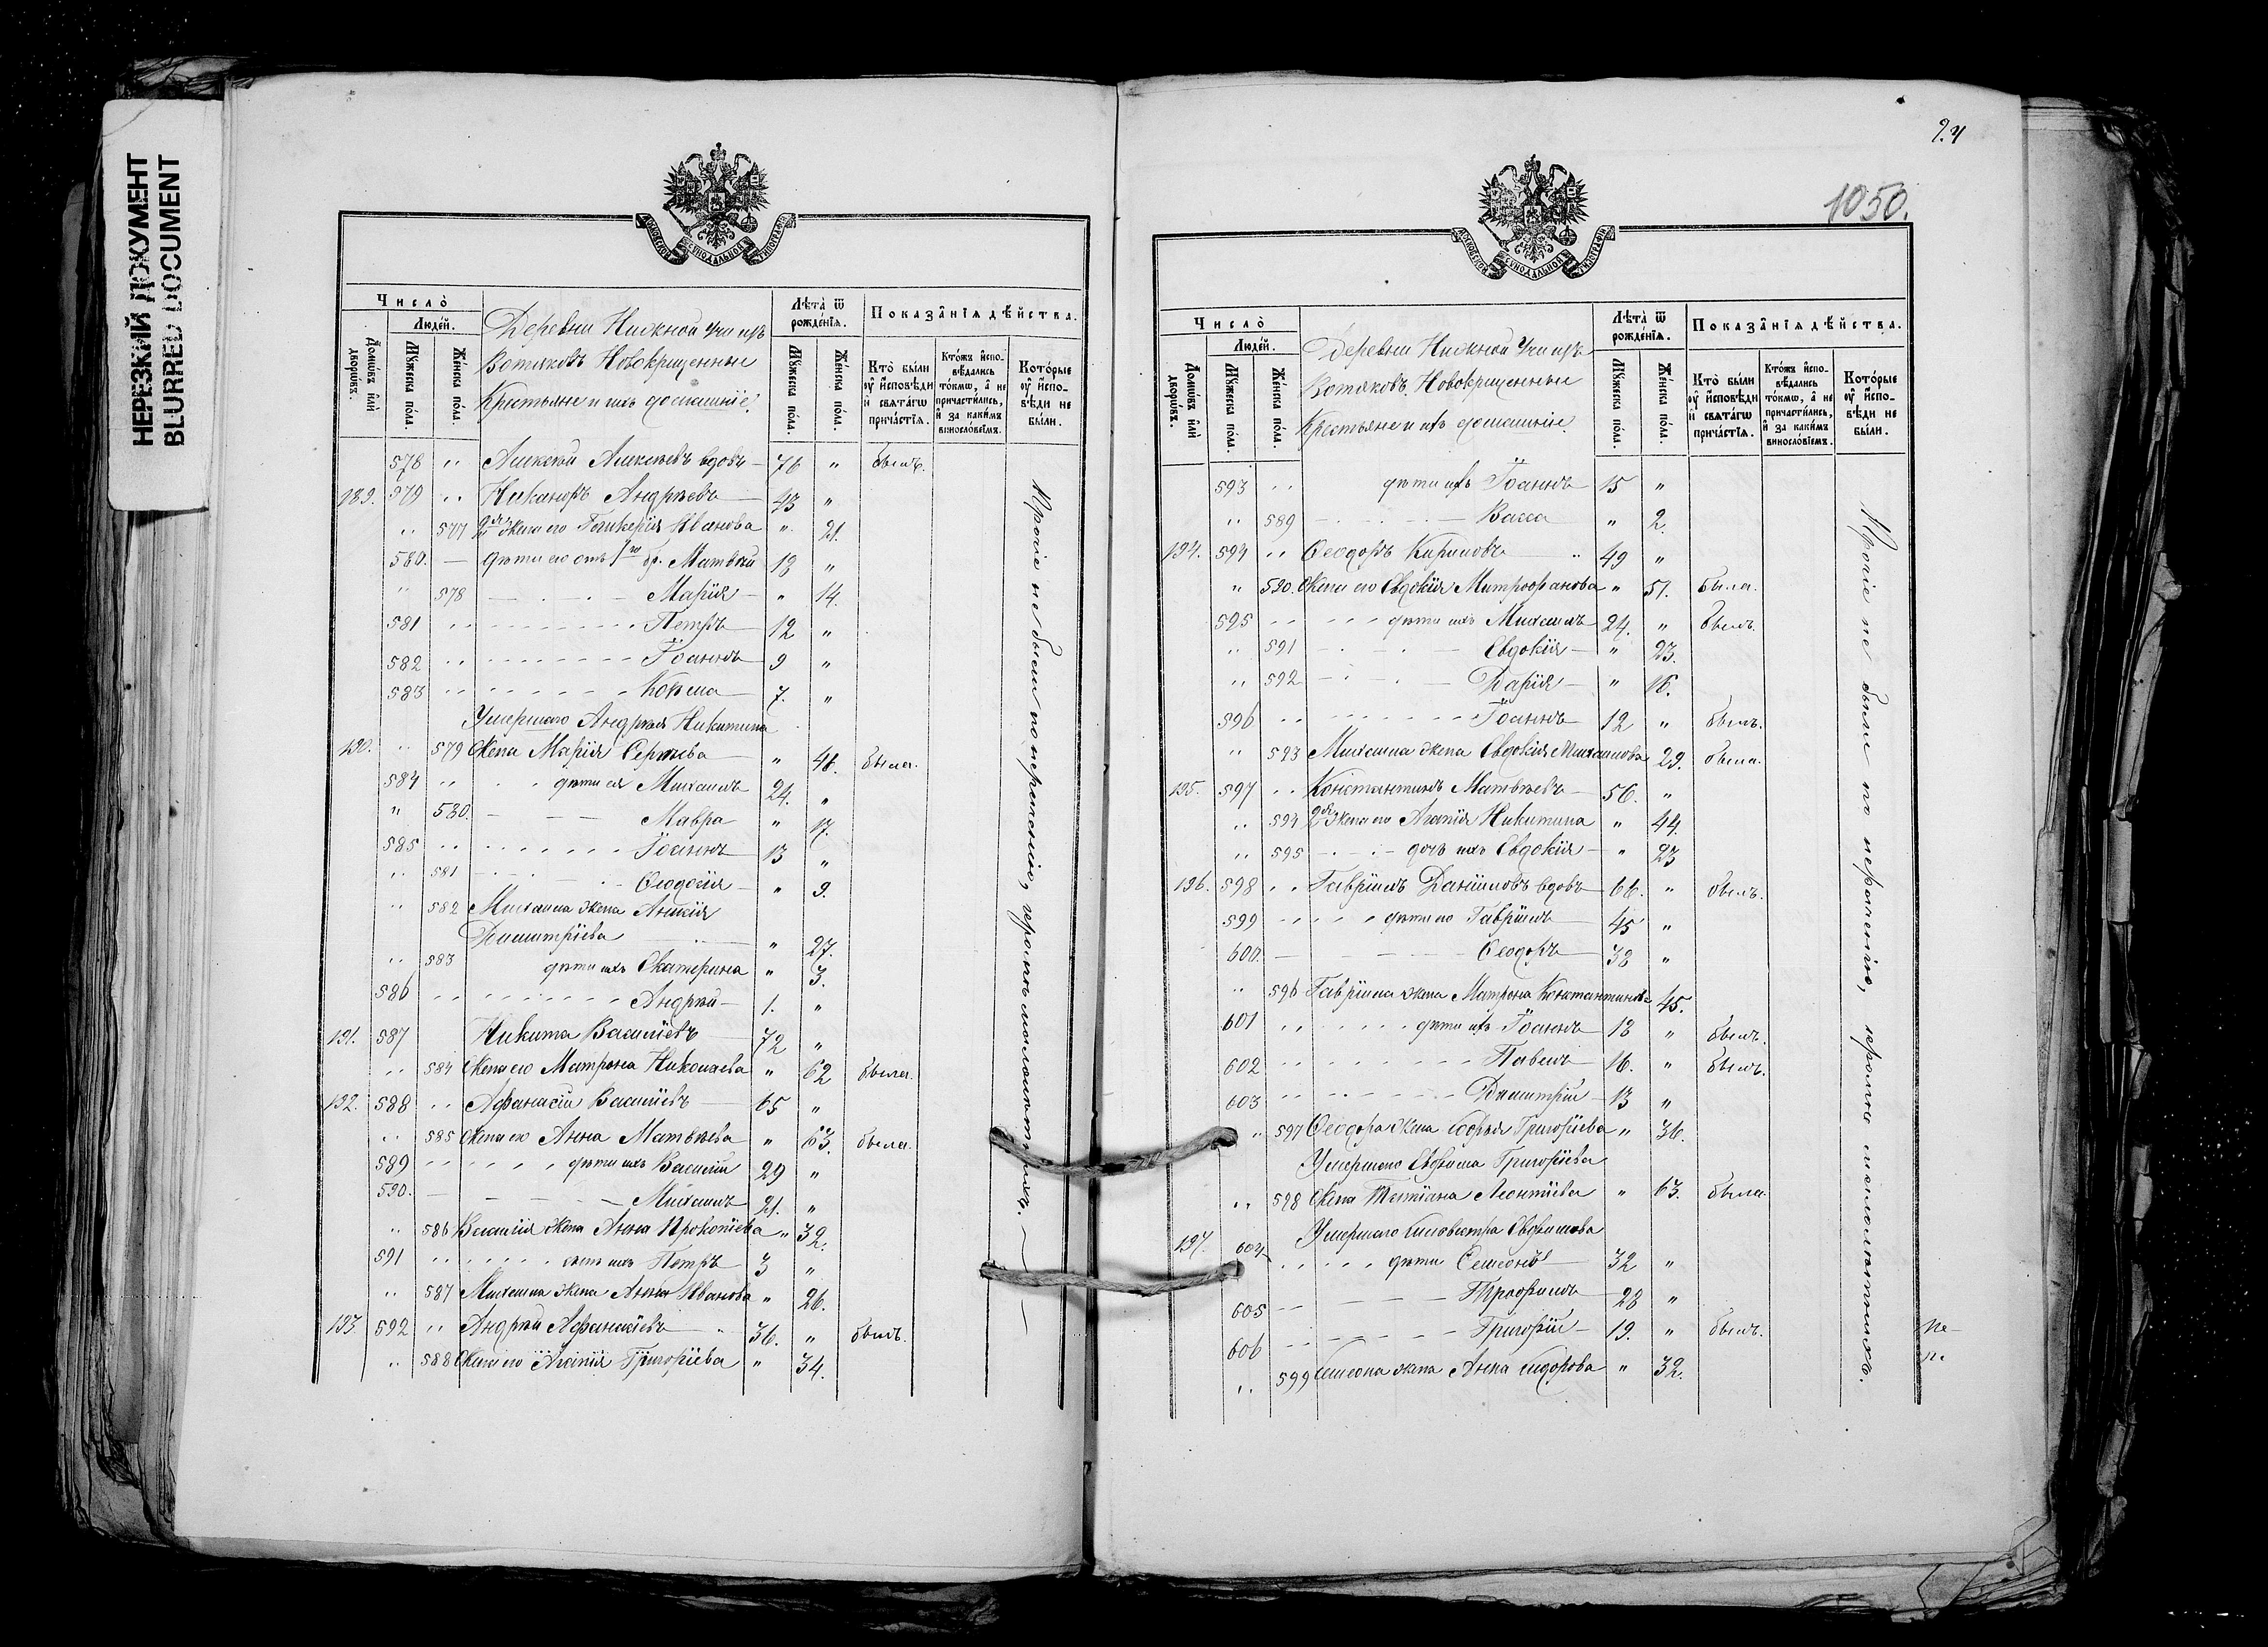 НЕРЕЗКИЙ ДОКУМЕНТ
BLURRED DOCUMENT
МОСКОВСКОЙ СѴНОДАЛЬНОЙ ТИПОГРАФІИ
Число̀
Люде́й.
Домѡ́въ и҆лѝ дворѡ́въ.
Мꙋ́жеска по́ла.
Же́нска по́ла.
Деревни Нижной Учи изъ
Вотяковъ Новокрещенные
Крестьяне и ихъ домашніе.
Лѣ́та ѿ рожде́нїѧ.
Мꙋ́жеска по́ла.
Же́нска по́ла.
Показа̂нїѧ дѣ́йства.
Кто̀ бы́ли оу҆ и҆сповѣ́ди и҆ свѧта́гѡ прича́стїѧ.
Кто́жъ и҆спо-вѣ́дались то́кмѡ, а҆ не причасти́лись, и҆ за каки́мъ виносло́вїемъ.
Кото́рые оу҆ и҆спо-вѣ́ди не бы́ли.
578 " Алексѣй Алексѣевъ вдовъ — 76 " былъ.
189. 579 " Никаноръ Андреевъ 43 "
" 577 2я жена его Гликерія Иванова " 21.
580. — дѣти его отъ 1го бр. Матвѣй 18 "
" 578 Марія " 14.
581 " Петръ 12 "
582 " Іоаннъ 9 "
583 " Козьма 7. "
Умершаго Андрея Никитина
190. " 579 Жена Марія Сергѣева " 48. была.
584 " дѣти ея Михаилъ 24. "
" 580. Мавра " 17.
585 " Іоаннъ 13 "
" 581 Ѳеодосія " 9.
" 582 Михаила жена
Димитріева " 27.
" 583 дѣти ихъ Екатерина " 3.
586 " Андрей 1. "
191. 587 Никита Васильевъ 72 "
" 584 Жена его Матрона Николаева " 62 была.
192. 588 " Аѳанасій Васильевъ 65 "
" 585 Жена его Анна Матвѣева " 63. была.
589 " дѣти ихъ Василій 29 "
590. — Михаилъ 21. "
" 586 Василія жена Анна Прокопіева " 32.
591 " сынъ ихъ Петръ 3 "
" 587 Михаила жена Анна Иванова " 26.
193 592 " Андрей Аѳанасьевъ 36. " былъ.
" 588 Жена его Агапія Григоріева " 34.
Прочіе не были по нераченію, кромѣ малолѣтнихъ.
1050.
МОСКОВСКОЙ СѴНОДАЛЬНОЙ ТИПОГРАФІИ
Число̀
Люде́й.
Домѡ́въ и҆лѝ дворѡ́въ.
Мꙋ́жеска по́ла.
Же́нска по́ла.
Деревни Нижной Учи изъ
Вотяковъ Новокрещенные
Крестьяне и ихъ домашніе.
Лѣ́та ѿ рожде́нїѧ.
Мꙋ́жеска по́ла.
Же́нска по́ла.
Показа̂нїѧ дѣ́йства.
Кто̀ бы́ли оу҆ и҆сповѣ́ди и҆ свѧта́гѡ прича́стїѧ.
Кто́жъ и҆спо-вѣ́дались то́кмѡ, а҆ не причасти́лись, и҆ за каки́мъ виносло́вїемъ.
Кото́рые оу҆ и҆спо-вѣ́ди не бы́ли.
593 " дѣти ихъ Іоаннъ 15 "
" 589 Васса " 2.
194. 594 " Ѳеодоръ Кириловъ 49 "
" 590. Жена его Евдокія Митрофанова " 51. была.
595 " дѣти ихъ Михаилъ 24. " былъ.
" 591 Евдокія " 23.
" 592 Дарія " 16.
596 " Іоаннъ 12 " былъ.
" 593 Михаила жена Евдокія Михаилова 29. была.
195. 597 " Константинъ Матвѣевъ 56. "
" 594 2я жена его Агапія Никитина " 44.
" 595 дочь ихъ Евдокія " 23
196. 598 " Гавріилъ Даніиловъ вдовъ 66. " былъ.
599 дѣти его Гавріилъ 45 "
600. Ѳеодоръ 38 "
" 596 Гавріила жена Матрона Константинова 45.
601 " дѣти ихъ Іоаннъ 18 " былъ.
602 " Павелъ 16. " былъ.
603 " Димитрій 13 "
" 597 Ѳеодора жена Софья Григоріева " 36.
Умершаго Евфима Григоріева
" 598 Жена Татіана Леонтіева " 63. была.
Умершаго Силвестра Евфимова
197. 604 дѣти Семеонъ 32 "
605 Трофимъ 28 "
606 Григорій 19. " былъ.
" 599 Симеона жена Анна Сидорова " 32.
Прочіе не были по нераченію, кромѣ малолѣтнихъ.